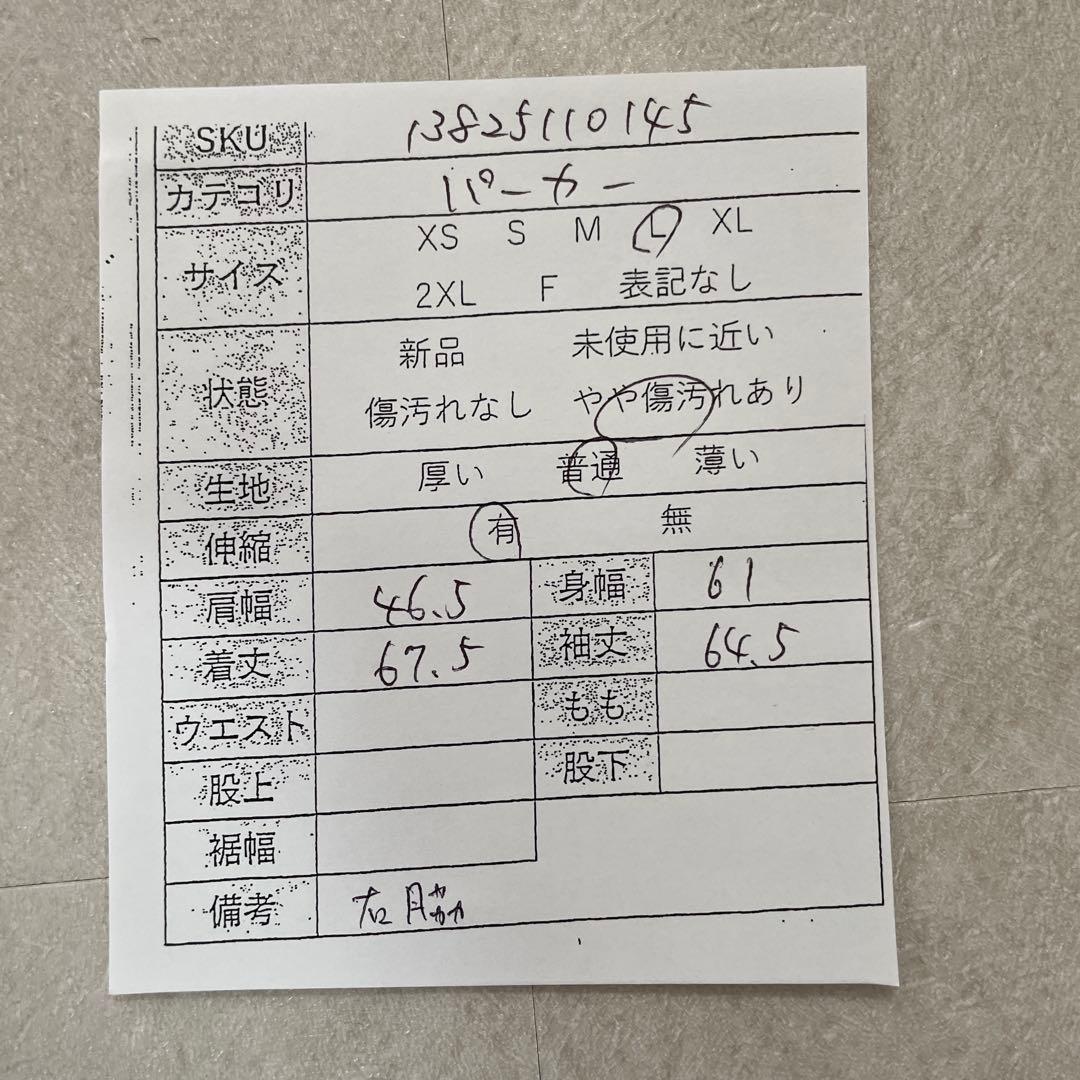 SKU 13825110145
カテゴリ パーカー
サイズ XS S M L XL
2XL F 表記なし
状態 新品 未使用に近い
傷汚れなし やや傷汚れあり
生地 厚い 普通 薄い
伸縮 有 無
肩幅 46.5 身幅 61
着丈 67.5 袖丈 64.5
ウエスト もも
股上 股下
裾幅
備考 右脇